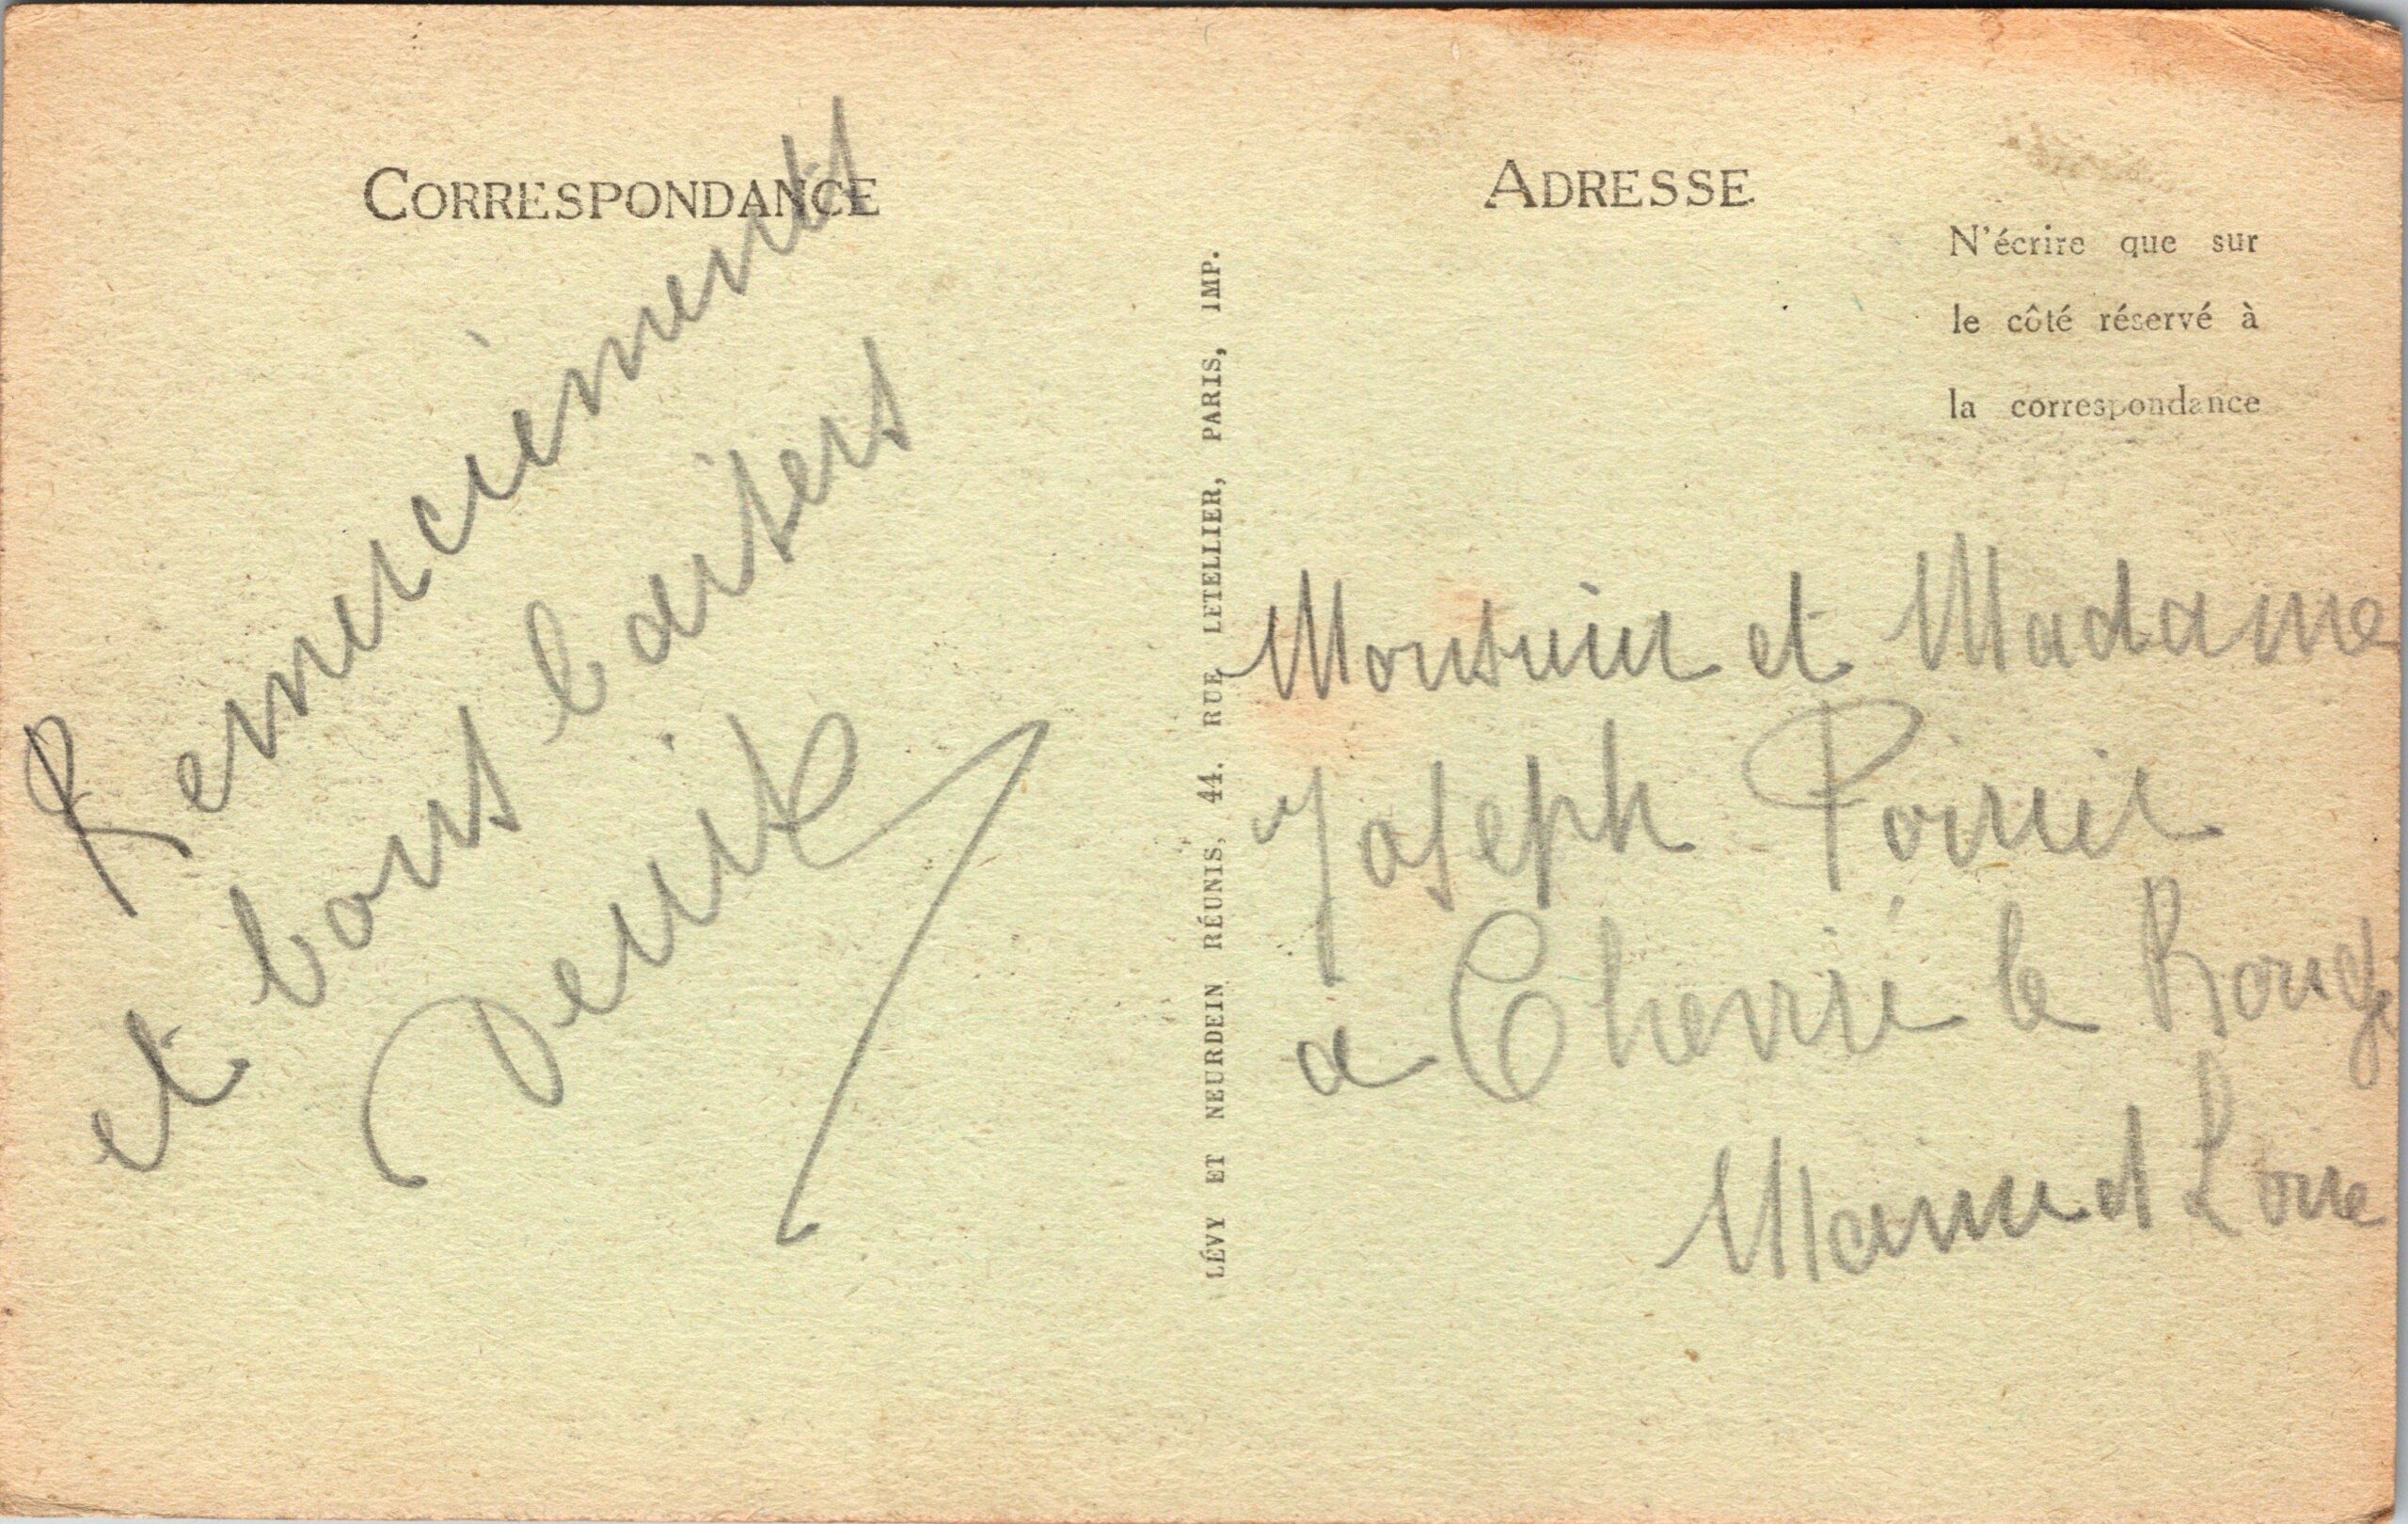 CORRESPONDANCE
Remerciements
et bons baisers
LÉVY ET NEURDEIN RÉUNIS, 44. RUE LETELLIER, PARIS, IMP.
ADRESSE
N'écrire que sur
le côté réservé à
la correspondance
Monsieur et Madame
Joseph Poirier
a le Rouge
Maine et Loire